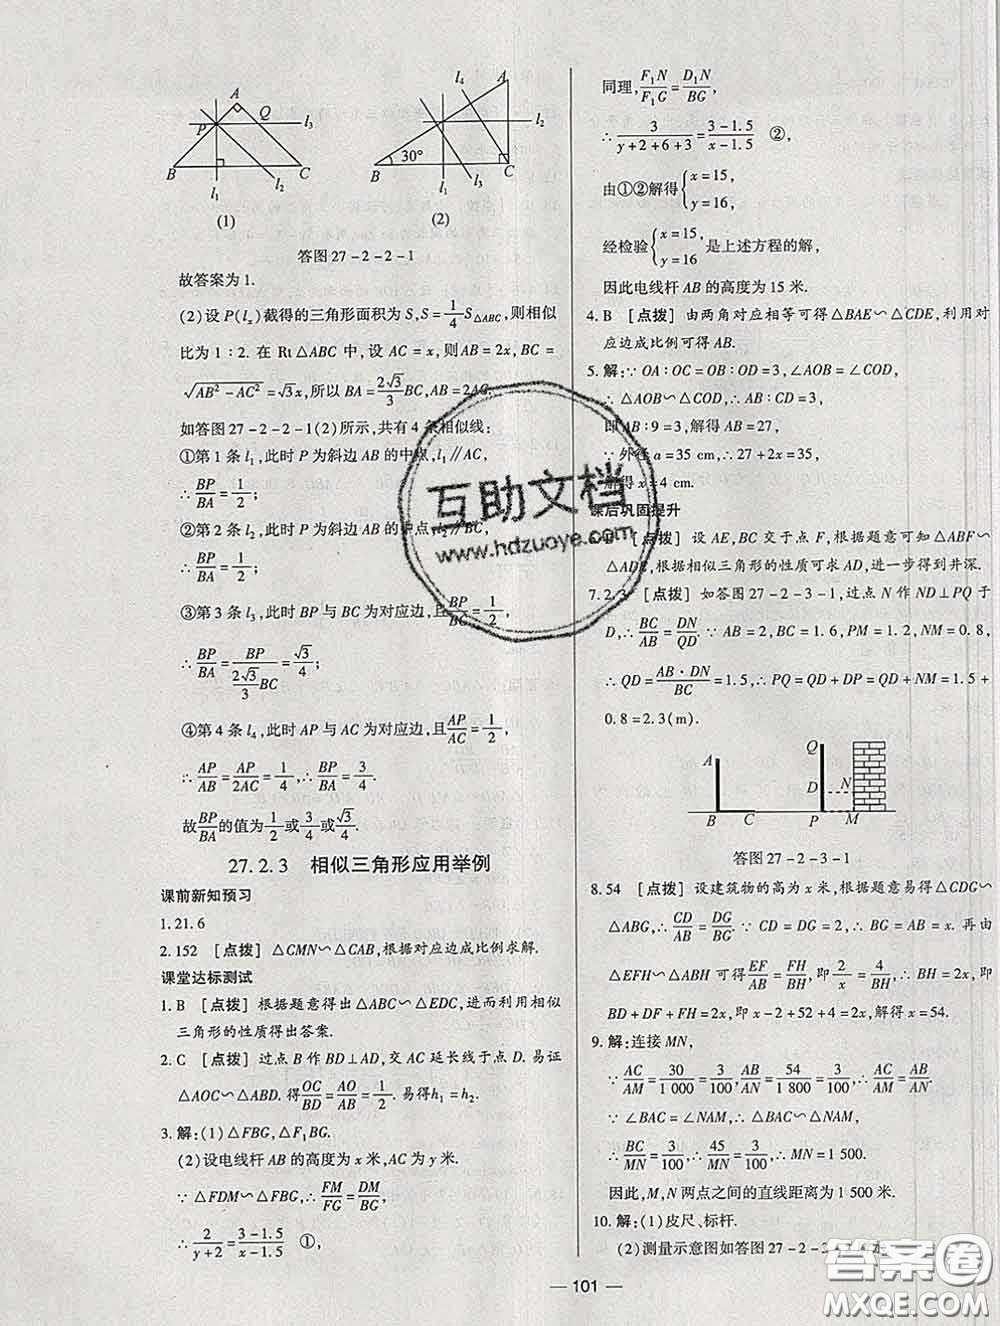 A
P
Q
l₃
B
C
l₁
l₂
(1)
l₄
A
l₂
30°
B
C
l₁
l₃
(2)
答图27-2-2-1
故答案为1.
(2)设P(lₓ)截得的三角形面积为S,S=1/4 S△ABC,则相似
比为1∶2.在Rt△ABC中,设AC=x,则AB=2x,BC=
√(AB²-AC²)=√3x,所以BA=2√3/3 BC,AB=2AC.
如答图27-2-2-1(2)所示,共有4条相似线:
①第1条l₁,此时P为斜边AB的中点,l₁∥AC,
∴BP/BA=1/2;
②第2条l₂,此时P为斜边AB的中点,l₂∥BC,
∴BP/BA=1/2;
③第3条l₃,此时BP与BC为对应边,且BP/BC=1/2,
∴BP/BA=BP/(2√3/3 BC)=√3/4;
④第4条l₄,此时AP与AC为对应边,且AP/AC=1/2,
∴AP/AB=AP/2AC=1/4,∴BP/BA=3/4.
故BP/BA的值为1/2或3/4或√3/4.
27.2.3 相似三角形应用举例
课前新知预习
1.21.6
2.152 [点拨] △CMN∽△CAB,根据对应边成比例求解.
课堂达标测试
1.B [点拨] 根据题意得出△ABC∽△EDC,进而利用相似
三角形的性质得出答案.
2.C [点拨] 过点B作BD⊥AD,交AC延长线于点D.易证
△AOC∽△ABD.得OC/BD=AO/AB=1/2.易得h₁=h₂.
3.解:(1)△FBG,△F₁BG.
(2)设电线杆AB的高度为x米,AC为y米.
∵△FDM∽△FBG,∴FM/FG=DM/BG,
∴2/(y+2)=(3-1.5)/(x-1.5) ①,
同理,F₁N/F₁G=D₁N/BG,
∴3/(y+2+6+3)=(3-1.5)/(x-1.5) ②,
由①②解得{x=15, y=16,
经检验{x=15, y=16是上述方程的解,
因此电线杆AB的高度为15米.
4.B [点拨] 由两角对应相等可得△BAE∽△CDE,利用对
应边成比例可得AB.
5.解:∵OA∶OC=OB∶OD=3,∠AOB=∠COD,
∴△AOB∽△COD,∴AB∶CD=3,
即AB∶9=3,解得AB=27,
∵外径a=35 cm,∴27+2x=35,
解得x=4 cm.
课后巩固提升
[点拨] 设AE,BC交于点F,根据题意可知△ABF∽
△ADE,根据相似三角形的性质可求AD,进一步得到井深.
7.2.3 [点拨] 如答图27-2-3-1,过点N作ND⊥PQ于
D,∴BC/AB=DN/QD.∵AB=2,BC=1.6,PM=1.2,NM=0.8,
∴QD=AB·DN/BC=1.5,∴PQ=QD+DP=QD+NM=1.5+
0.8=2.3(m).
A
Q
D
N
B
C
P
M
答图27-2-3-1
8.54 [点拨] 设建筑物的高为x米,根据题意易得△CDG∽
△ABG,∴CD/AB=DG/BG.∵CD=DG=2,∴BG=AB=x.再由
△EFH∽△ABH可得EF/AB=FH/BH,即2/x=4/BH,∴BH=2x,即
BD+DF+FH=2x,即x-2+52+4=2x,解得x=54.
9.解:连接MN,
∵AC/AM=30/1 000=3/100,AB/AN=54/1 800=3/100,∴AC/AM=AB/AN.
∵∠BAC=∠NAM,∴△BAC∽△NAM,
∴BC/MN=3/100,∴45/MN=3/100,∴MN=1 500.
因此,M,N两点之间的直线距离为1 500米.
10.解:(1)皮尺、标杆.
(2)测量示意图如答图27-2-
101
互助文档
www.hdzuoye.com
答案圈
MXQE.COM